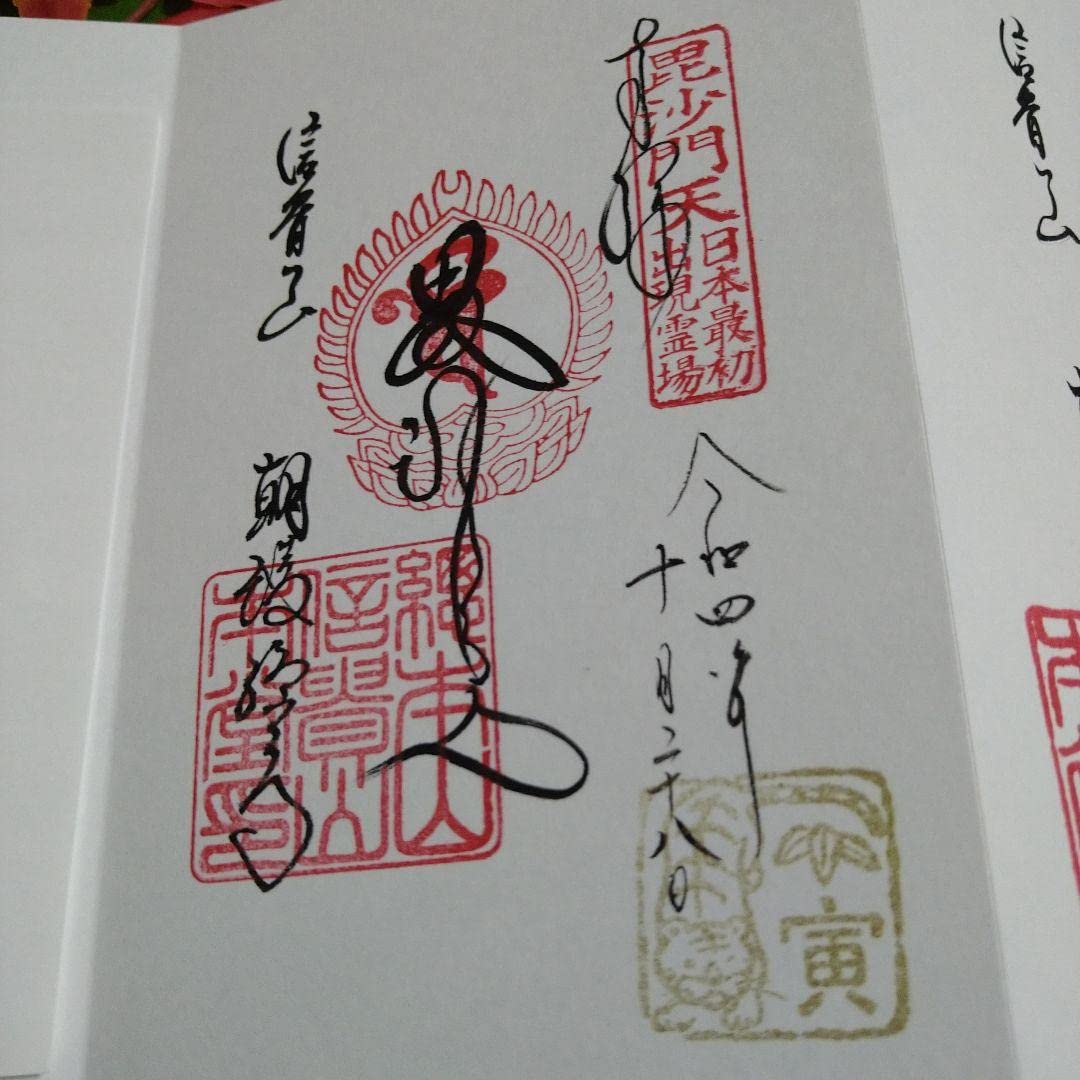 奉拝
毘沙門天
日本最初
出現霊場
令和四年
十月二十八日
寅
毘沙门天
總本山
信貴山
本堂印
信貴山
朝護孫子寺
信貴山